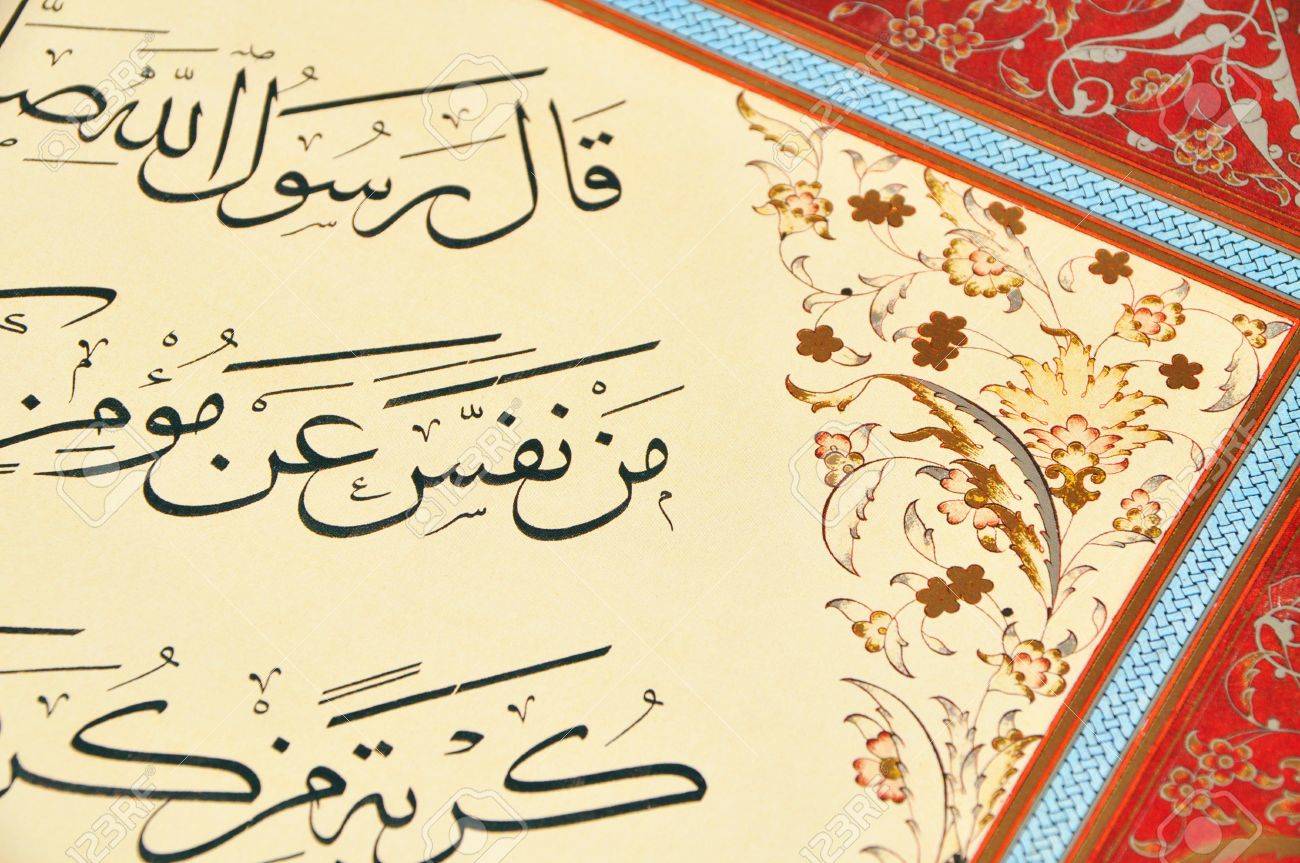 قَالَ رَسُولُ اللّٰهِ صَ
مَنْ نَفَّسَ عَنْ مُؤْمِنٍ كُ
كُرْبَةً مِنْ كُرَ
123RF